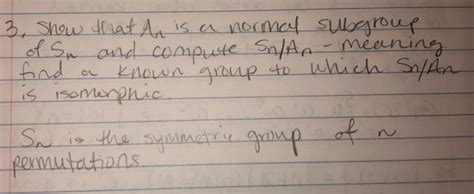 3. Show that An is a normal subgroup
of Sn and compute Sn/An - meaning
find a known group to which Sn/An
is isomorphic.
Sn is the symmetric group of n
permutations.